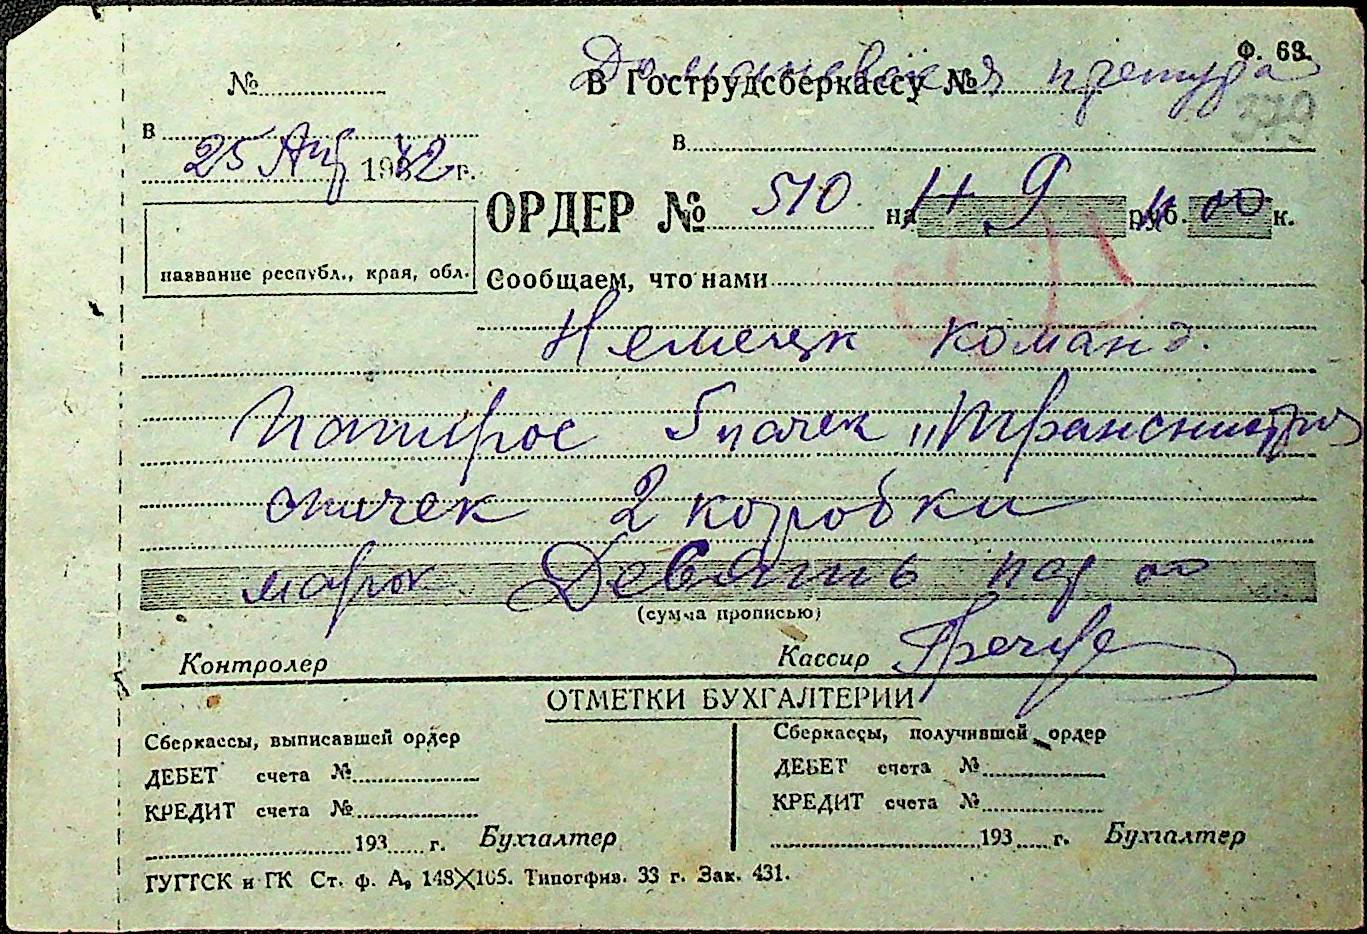 Ф. 63.
№
В Гострудсберкассу №
Доманевская претура
379
в
в
25 Авг 1942 г.
ОРДЕР № 510 на 9 руб. 00 к.
название республ., края, обл.
Сообщаем, что нами
Немецк команд.
Папирос 5 пачек „Транснистрия
спичек 2 коробки
марок Девять 00
(сумма прописью)
Контролер
Кассир
ОТМЕТКИ БУХГАЛТЕРИИ
Сберкассы, выписавшей ордер
Сберкассы, получившей ордер
ДЕБЕТ счета №
ДЕБЕТ счета №
КРЕДИТ счета №
КРЕДИТ счета №
193 г. Бухгалтер
193 г. Бухгалтер
ГУГТСК и ГК Ст. ф. А, 148Х105. Типогфив. 33 г. Зак. 431.